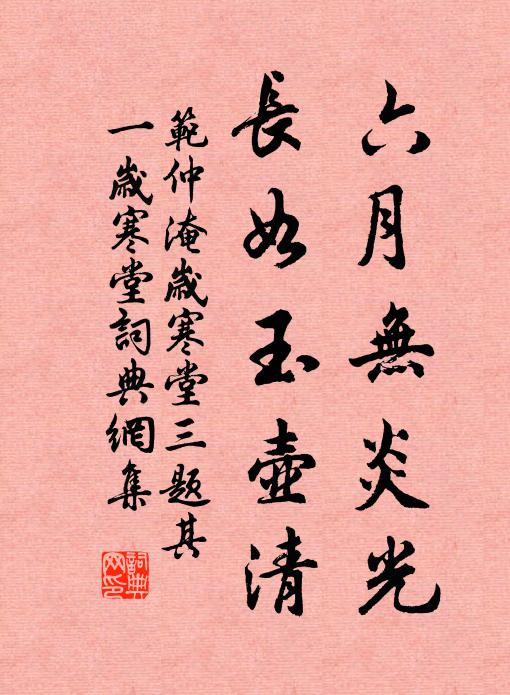 六月無炎光
長如玉壺清
範仲淹歲寒堂三題其
一歲寒堂詞典網集
詞典网印